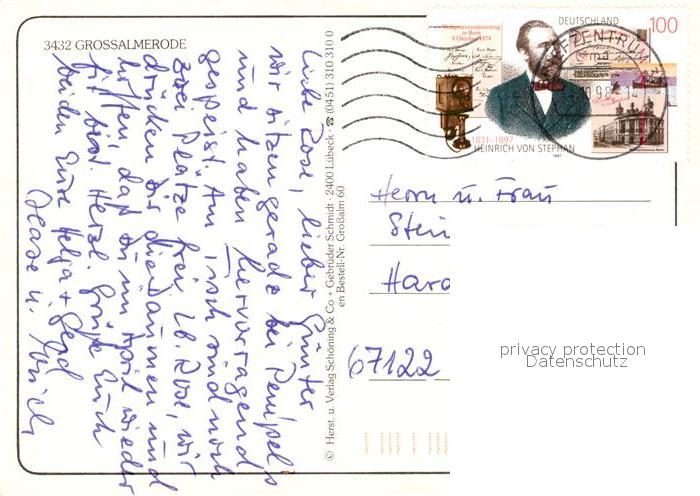 3432 GROSSALMERODE
Liebe Rose, lieber Günter
wir sitzen gerade bei Pempel's
und haben hervorragend
gespeist. Am Tisch sind noch
zwei Plätze frei. Lb. Rose, wir
drücken Dir die Daumen und
hoffen, daß Du im April wieder
fit bist. Herzl. Grüße Euch
beiden Eure Helga + Gerd
© Herst. u. Verlag Schöning & Co + Gebrüder Schmidt · 2400 Lübeck · ☎ (0451) 310 310 0
en Bestell-Nr. Großalm 60
Weltpostvereinsvertrag
in Bern
9. Oktober 1874
DEUTSCHLAND
100
FZENTRUM
1831–1897
HEINRICH VON STEPHAN
1997
Herrn u. Frau
Stei
Hard
67122
privacy protection
Datenschutz